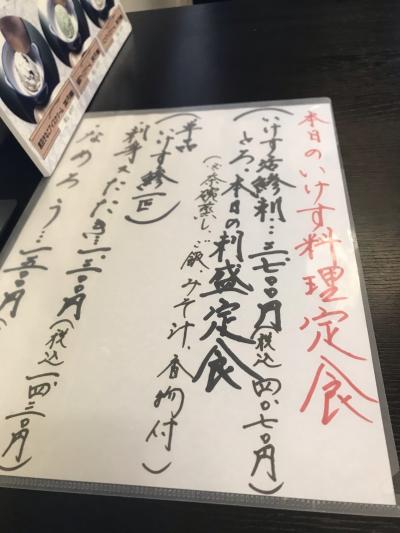 本日のいけす料理定食
(いけす活鯵刺…三、七〇〇円(税込四、〇七〇円)
とろ、本日の刺盛定食
(※茶碗蒸し、ご飯、みそ汁、香物付)
単品
(いけす鯵一匹)
刺身又たたき…一、三〇〇円(税込一、四三〇円)
なめろう…一、五〇〇円(